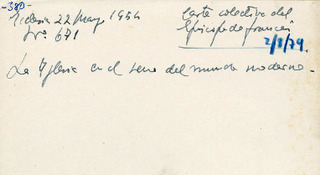 -380-
Ecclesia 22 Mayo 1954
Nº 671
Carta colectiva del
Episcopado francés
2/8/79.
La Iglesia en el seno del mundo moderno.-